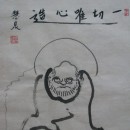 一切唯心造